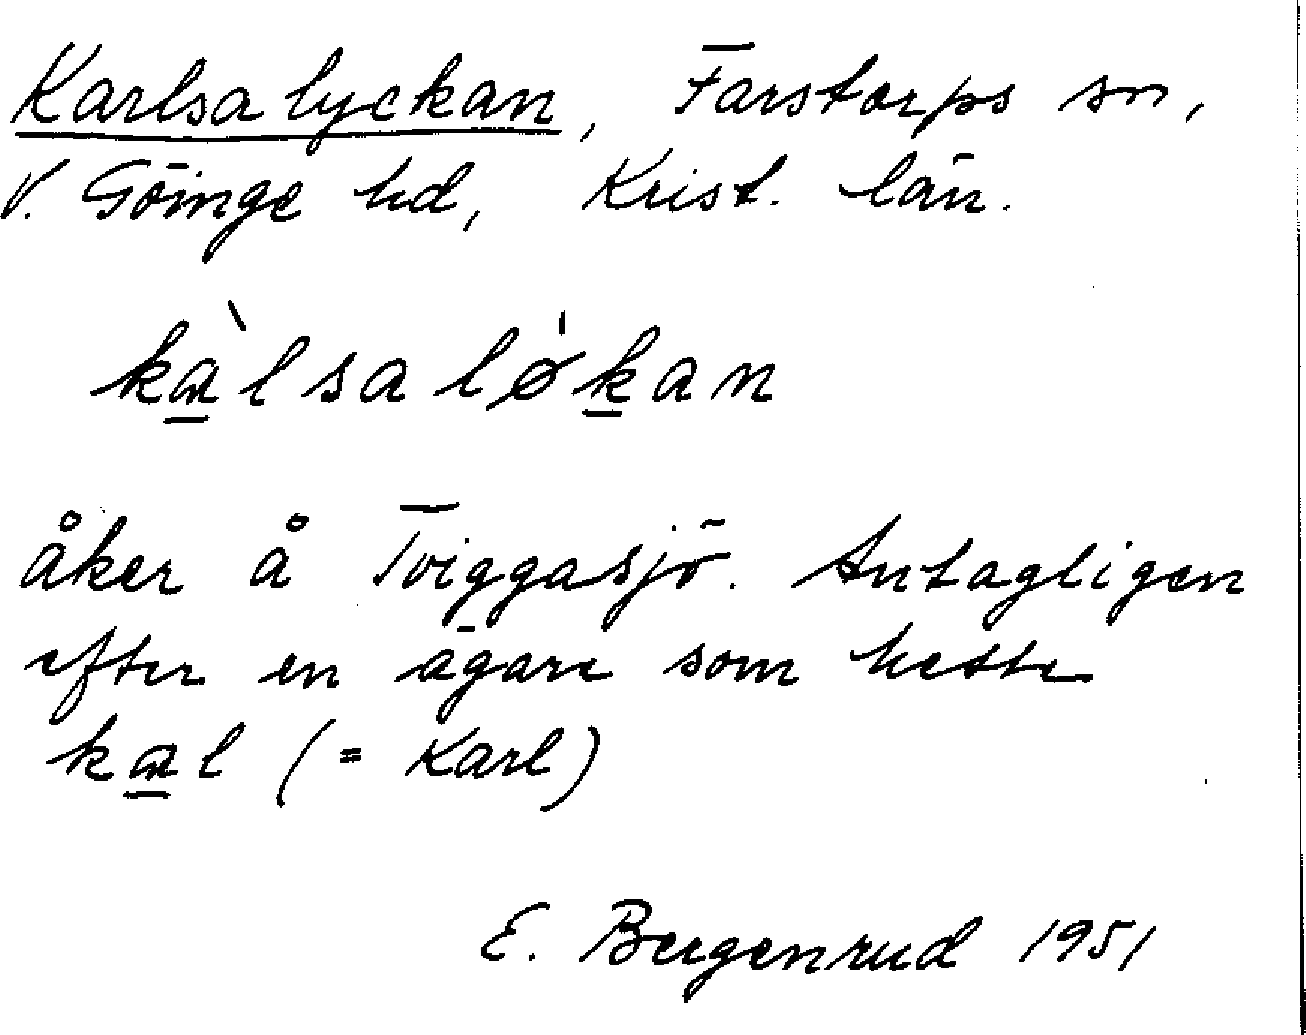 Karlsa lyckan, Farstorps sn,
V. Göinge hd, Krist. län.
kɑ̀lsalø̍kan
åker å Tviggasjö. Antagligen
efter en ägare som hette
kɑl (= Karl)
E. Bergenrud 1951